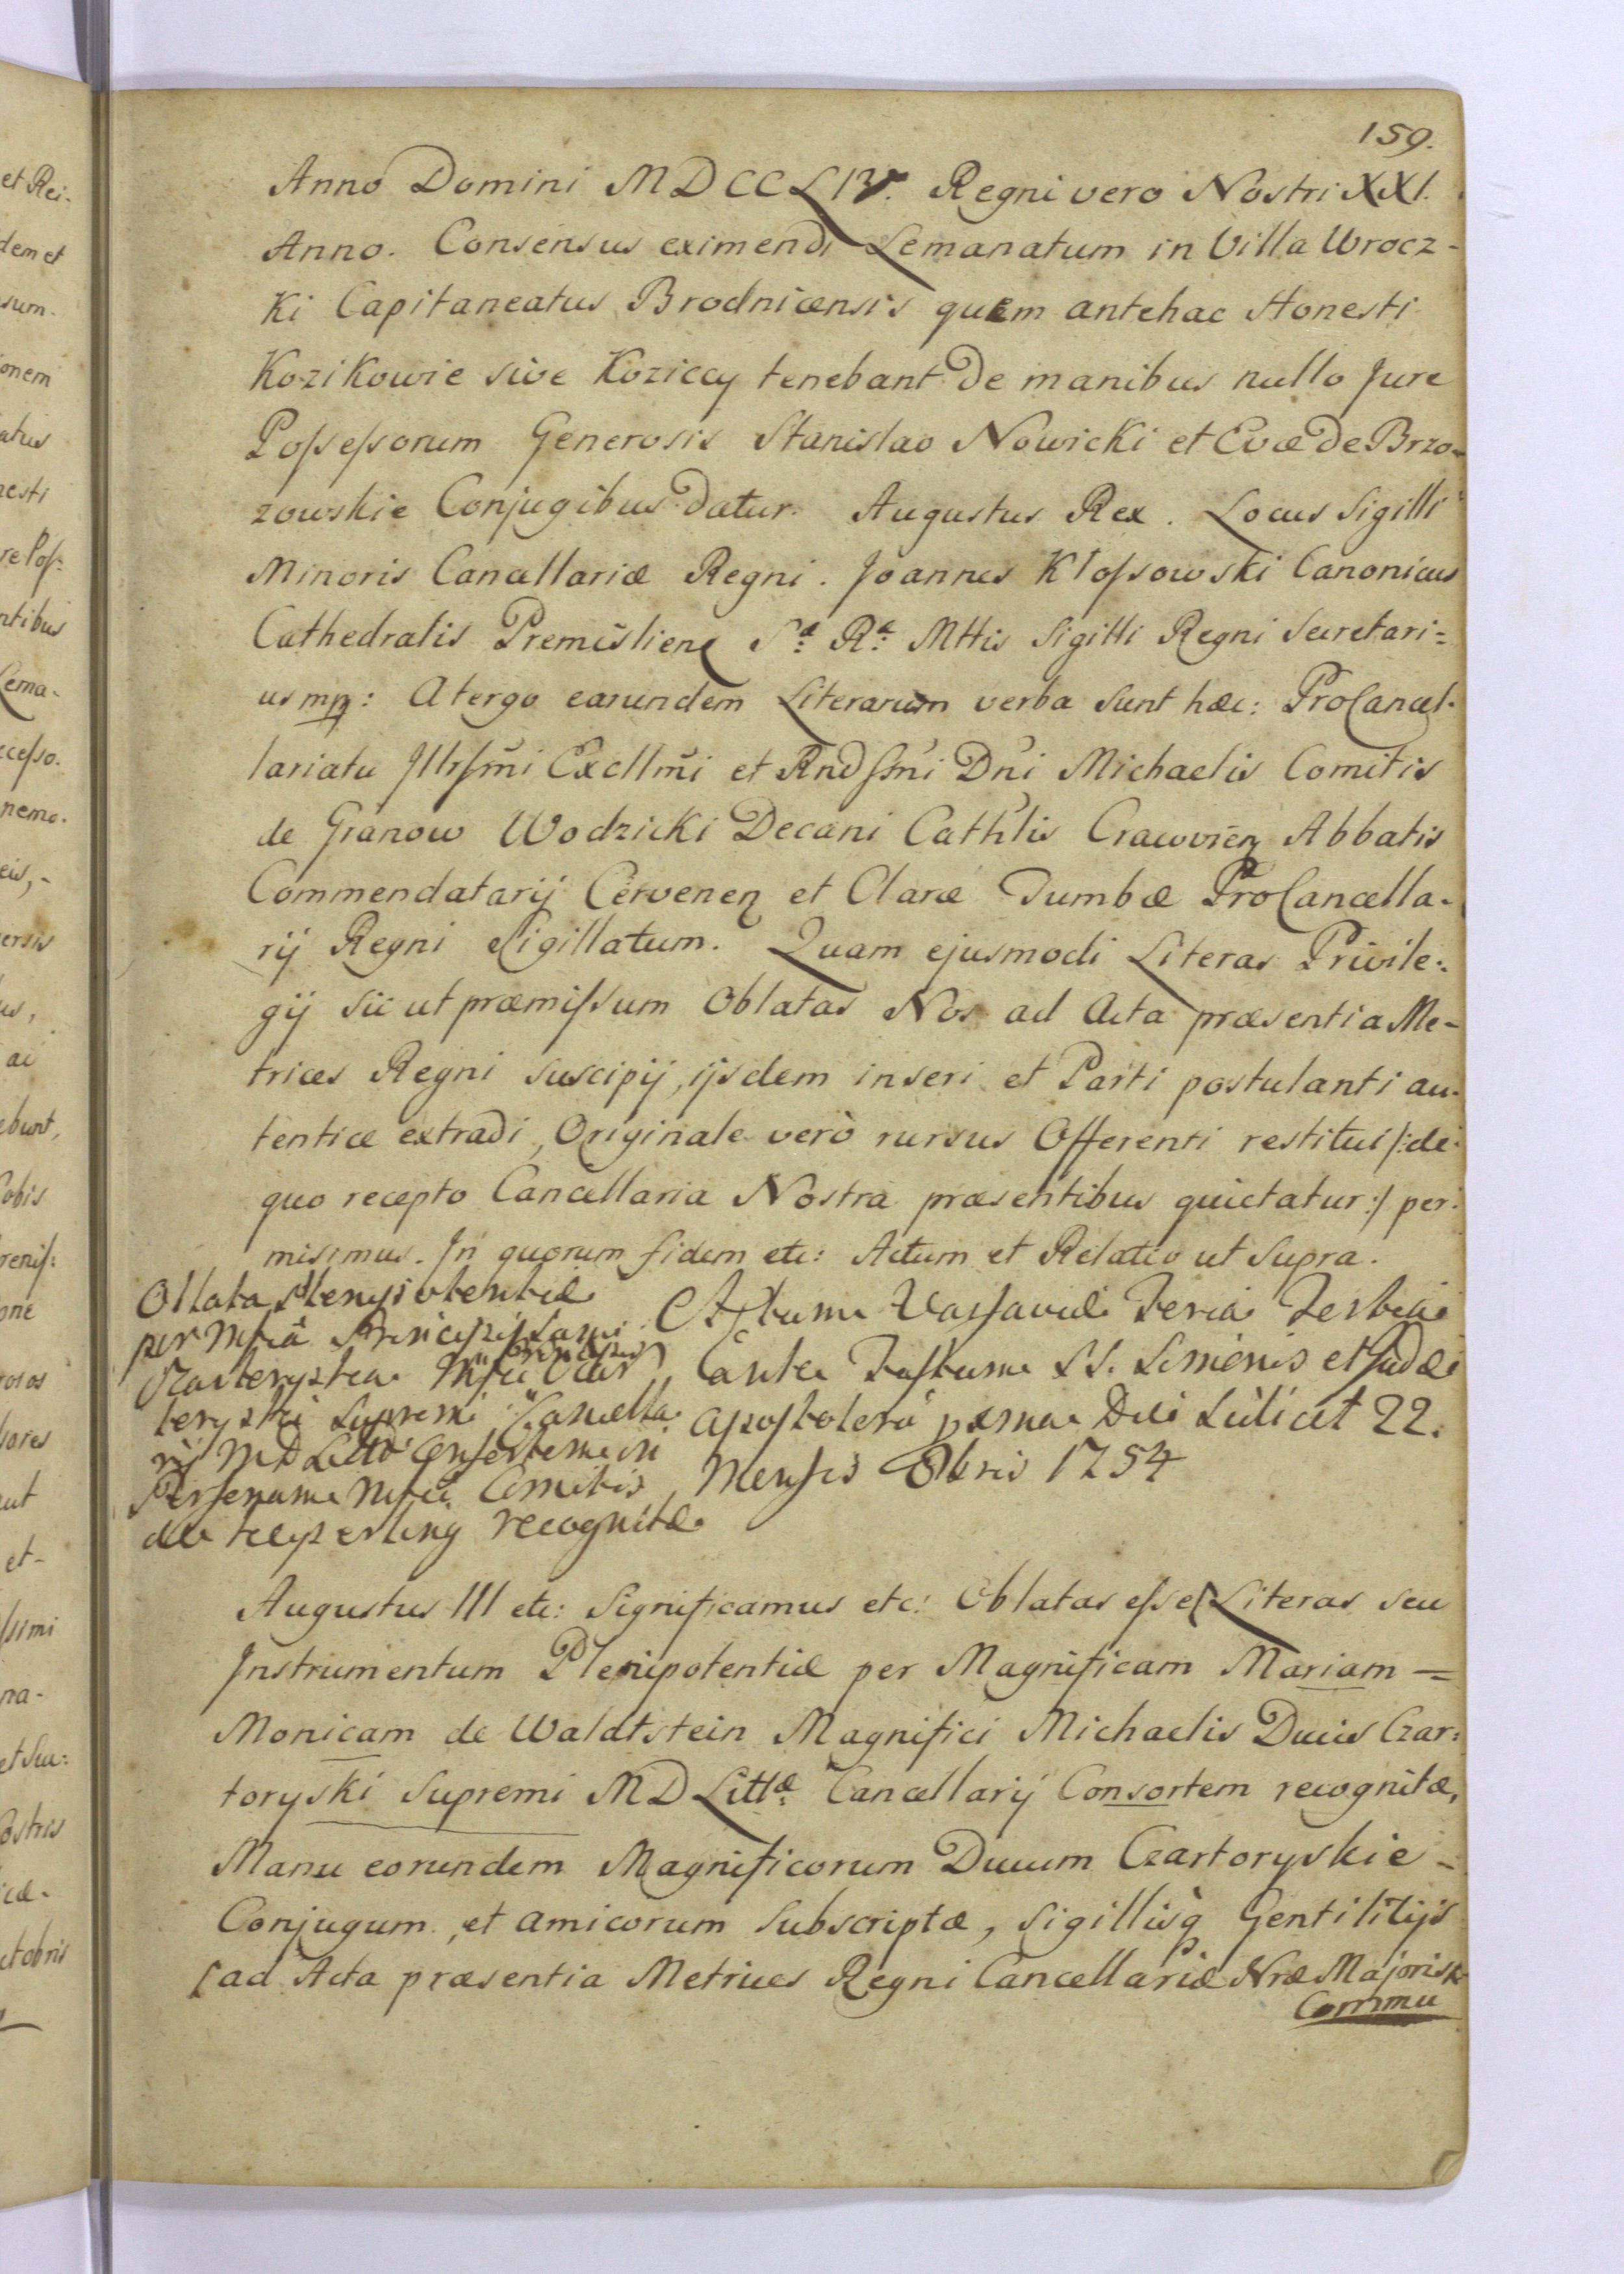 159.
Anno Domini MDCCLIV. Regni vero Nostri XXI.
Anno. Consensus eximendi Lemanatum in Villa Wrocz-
Ki Capitaneatus Brodnicensis quem antehac Honesti
Kozikowie sive Koziccy tenebant de manibus nullo Jure
Possessorum Generosis Stanislao Nowicki et Evæ de Brzo-
zowskie Conjugibus datur. Augustus Rex. Locus Sigilli
Minoris Cancellariæ Regni. Joannes Kłossowski Canonicus
Cathedralis Premislien S^æ: R^æ: Mttis Sigilli Regni Secretari=
us mp: A tergo earundem Literarum verba sunt hæc: ProCancel-
lariatu Illrssmi Excllmi et Rndssmi Dni Michaelis Comitis
de Granow Wodzicki Decani Cathlis Cracovien Abbatis
Commendatarij Cervenen et Claræ Tumbæ ProCancella-
rij Regni Sigillatum. Quam ejusmodi Literas Privile-
gij sic ut præmissum Oblatas Nos ad Acta præsentia Me-
trices Regni suscipij, ijsdem inseri et Parti postulanti au-
tenticæ extradi, Originale verò rursus Offerenti restitui /:de
quo recepto Cancellaria Nostra præsentibus quietatur:/ per-
misimus. In quorum fidem etc: Actum et Relatio ut Supra.
Oblata Plenipotentiæ
per Mfcâ Principissam
Czartoryska Mfci Principis Czar
toryski Supremi Cancella
rij MDLittæ Consortem in
Personam Mfci Comitis
de recognitæ
Actum Varsaviæ Feria Tertia
Ante Festum SS. Simonis et Judæ
Apostolorũ Die Scilicet 22.
Mensis Obris 1754
Augustus III etc: Significamus etc: Oblatas esse Literas seu
Instrumentum Plenipotentiæ per Magnificam Mariam =
Monicam de Waldtstein Magnifici Michaelis Ducis Czar=
toryski Supremi MD Litt^æ: Cancellarij Consortem recognitæ,
Manu eorundem Magnificorum Ducum Czartoryskie -
Conjugum, et amicorum subscriptæ, sigillisq Gentilitijs
ad Acta præsentia Metrices Regni Cancellariæ Nræ Majoris
Commu